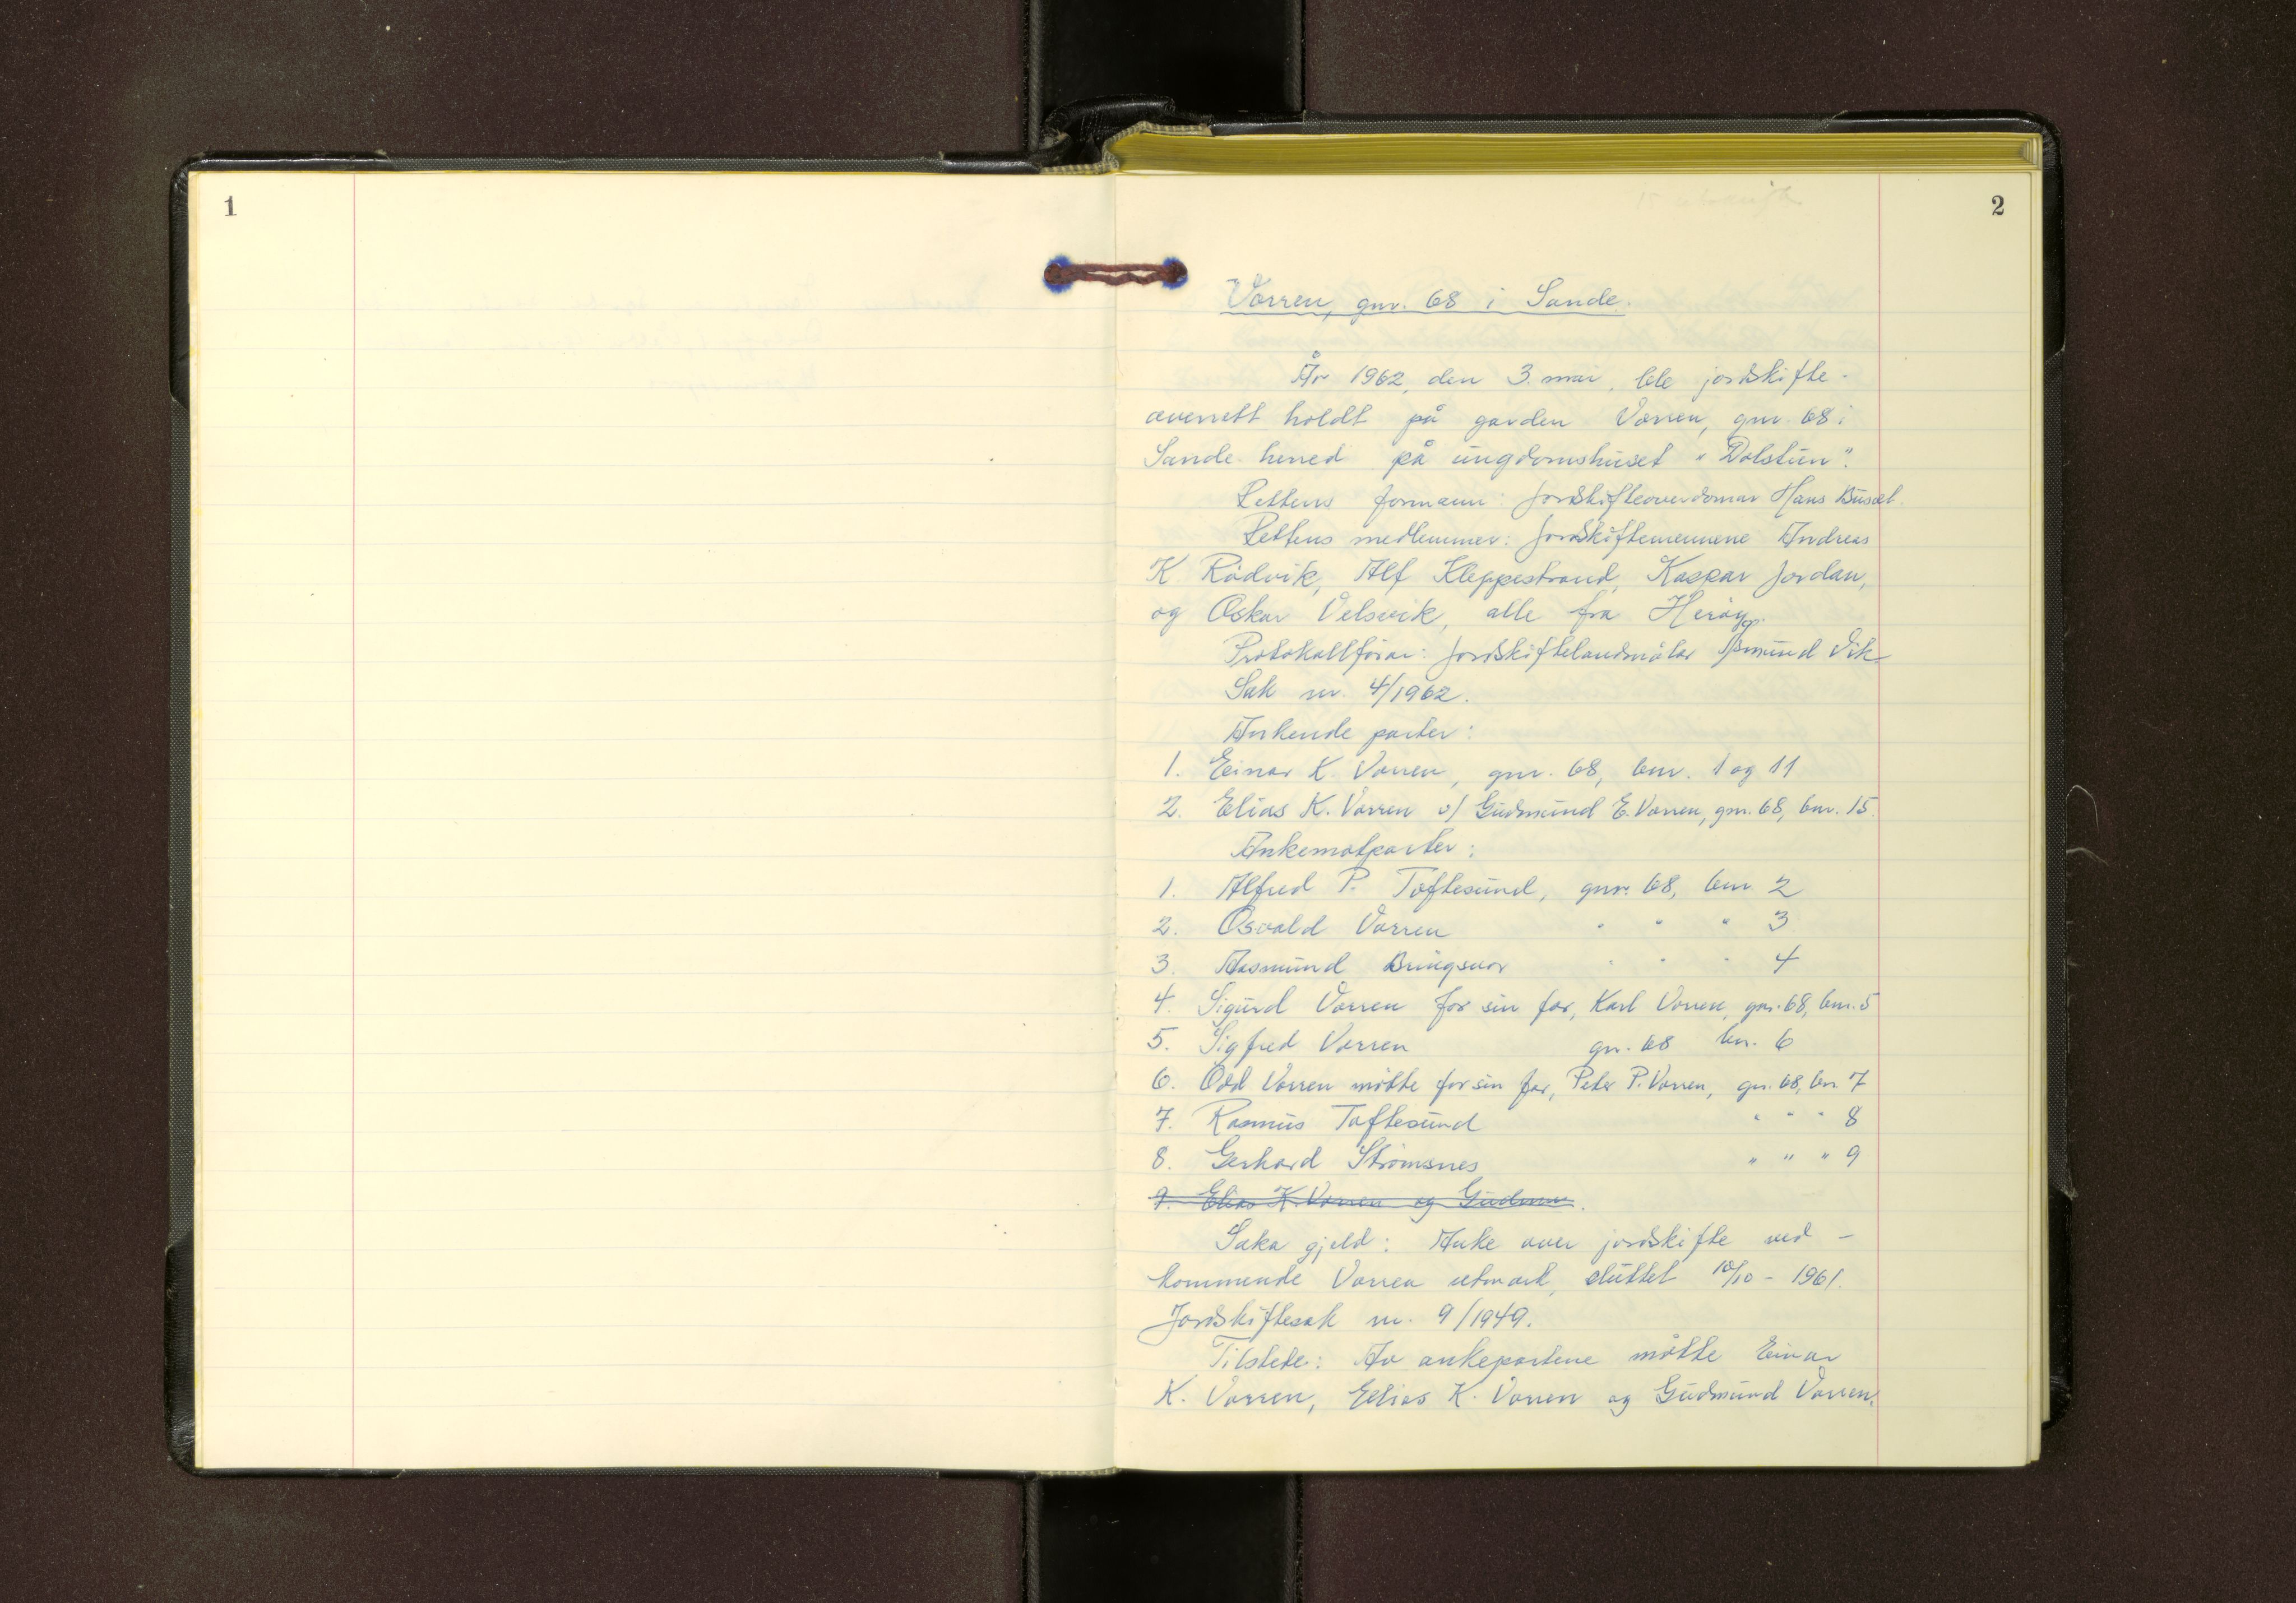 1
2
15 utskrift
Vorren, gnr. 68 i Sande.
År 1962, den 3. mai, ble jordskifte-
overrett holdt på garden Vorren, gnr. 68 i
Sande herred på ungdomshuset "Dolstun".
Rettens formann: Jordskifteoverdomar Hans Busæt.
Rettens medlemmer: Jordskiftemennene Andreas
K Rødvik, Alf Kleppestrand, Kaspar Jordan,
og Oskar Velsvik, alle fra Herøy.
Protokollførar: Jordskiftelandmålar Åsmund Vik
Sak nr. 4/1962.
Ankende parter:
1. Einar K. Vorren, gnr. 68, bnr. 1 og 11
2. Elias K. Vorren v/ Gudmund E. Vorren, gnr. 68, bnr. 15.
Ankemotparter:
1. Alfred P. Toftesund, gnr. 68, bnr 2
2. Osvald Vorren " " " 3
3. Aasmund Bringsvor " " " 4
4. Sigurd Vorren for sin far, Karl Vorren, gnr. 68, bnr. 5
5. Sigfred Vorren gn. 68 bn. 6
6. Odd Vorren møtte for sin far, Peter P. Vorren, gn. 68, bn 7
7. Rasmus Toftesund " " " 8
8. Gerhard Strømsnes " " " 9
9. Elias K. Vorren og Gudmun.
Saka gjeld: Anke over jordskifte ved-
kommende Vorren utmark, sluttet 10/10 - 1961.
Jordskiftesak nr. 9/1949.
Tilstede: Av ankepartene møtte Einar
K. Vorren, Elias K. Vorren og Gudmund Vorren.